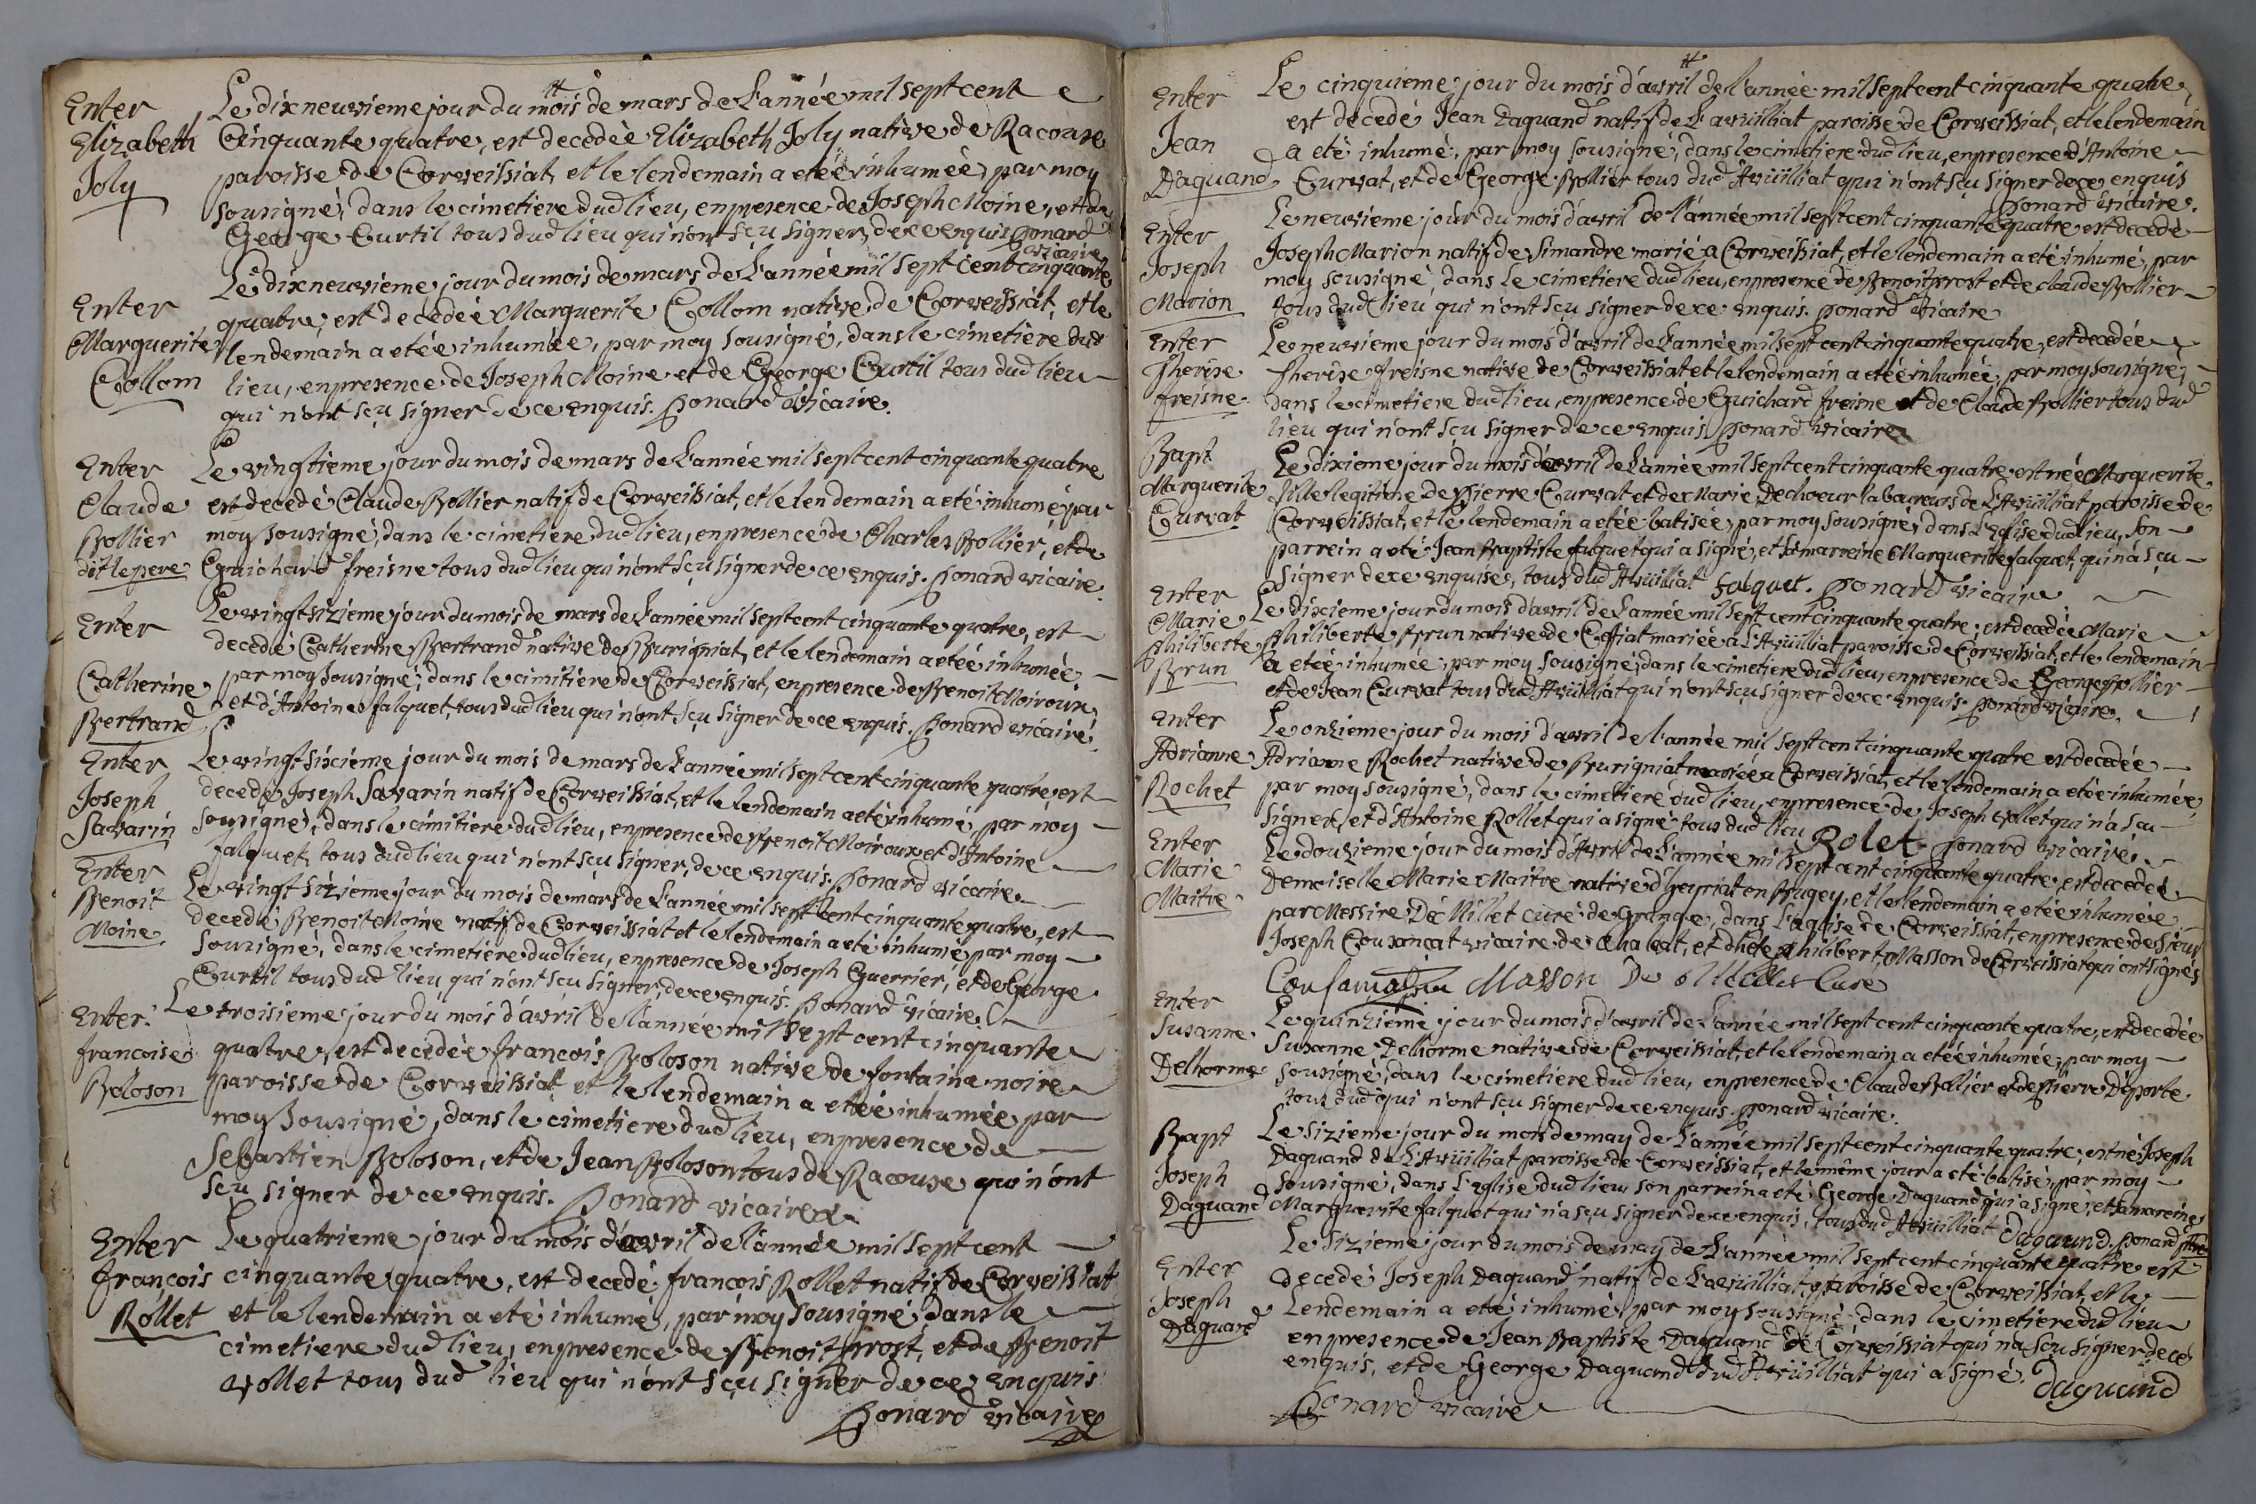 Enter
Elizabeth
Joly
Le dixneuvieme jour du mois de mars de L'année mil sept cent
Cinquante quatre, est decedée Elizabeth Joly native de Racouse
paroisse de Corveissiat, et le lendemain a etée inhumée, par moy
sousigné, dans le cimetiere dud lieu, en presence de Joseph Moine, et de
George Curtil tous dud lieu qui n'ont sçu signer, de ce enquis Honard
vicaire
Enter
Marguerite
Collom
Le dixneuvieme jour du mois de mars de L'année mil sept cent cinquante
quatre, est decedée Marguerite Collom native de Corveissiat, et le
lendemain a etée inhumée, par moy sousigné, dans le cimetiere dud
lieu, en presence de Joseph Moine et de George Curtil tous dud lieu
qui n'ont sçu signer de ce enquis. Honard Vicaire.
Enter
Claude
Bollier
dit le pere
Le vingtieme jour du mois de mars de L'année mil sept cent cinquante quatre
est decedé Claude Bollier natif de Corveissiat, et le lendemain a eté inhumé par
moy sousigné, dans le cimetiere dud lieu, en presence de Charles Bollier, et de
Guichard freisne tous dud lieu qui n'ont sçu signer de ce enquis. Honard vicaire.
Enter
Catherine
Bertrand
Le vingt sizieme jour du mois de mars de L'année mil sept cent cinquante quatre, est
decedé Catherine Bertrand native de Burigniat, et le lendemain a etée inhumée
par moy sousigné, dans le cimitiere de Corveissiat, en presence de Benoit Moiroux,
et d'Antoine falquet, tous dud lieu qui n'ont sçu signer de ce enquis. Honard vicaire.
Enter
Joseph
Savarin
Le vingt sixcieme jour du mois de mars de L'année mil sept cent cinquante quatre, est
decedé Joseph Savarin natif de Corveissiat, et le lendemain a eté inhumé, par moy
sousigné, dans le cimitiere dud lieu, en presence de Benoit Moiroux et d'Antoine
falquet, tous dud lieu qui n'ont sçu signer, de ce enquis. Honard vicaire
Enter
Benoit
Moine
Le vingt sizieme jour du mois de mars de L'année mil sept cent cinquante quatre, est
decedé Benoit Moine natif de Corveissiat et le lendemain a eté inhumé par moy
sousigné, dans le cimetiere dud lieu, en presence de Joseph Guerrier, et de George
Curtil tous dud lieu qui n'ont sçu signer, de ce enquis. Honard vicaire
Enter.
francoise
Boloson
Le troisieme jour du mois d'avril de l'année mil sept cent cinquante
quatre, est decedée françois Boloson native de fontaine noire
paroisse de Corveissiat et le lendemain a etée inhumée par
moy sousigné, dans le cimetiere dud lieu, en presence de
Sebastien Boloson, et de Jean Boloson tous de Racouse qui n'ont
sçu signer de ce enquis. Honard vicaire
Enter
françois
Rollet
Le quatrieme jour du mois d'avril de l'année mil sept cent
cinquante quatre, est decedé françois Rollet natif de Corveissiat
et le lendemain a eté inhumé, par moy sousigné dans le
cimetiere dud lieu, en presence de Benoit prost, et de Benoit
vollet tous dud lieu qui n'ont sçu signer de ce enquis
Honard vicaire
Enter
Jean
Daquand
Le cinquieme jour du mois d'avril de l'année mil sept cent cinquante quatre
est decedé Jean Daquand natif de L'avuilliat paroisse de Corveissiat, et le lendemain
a eté inhumé, par moy sousigné, dans le cimetiere dud lieu, en presence d'Antoine
Curvat, et de George Bollier tous dud Avuilliat qui n'ont sçu signer de ce enquis
Honard vicaire.
Enter
Joseph
Marion
Le neuvieme jour du mois d'avril de l'année mil sept cent cinquante quatre est decedé
Joseph Marion natif de Simandre marié a Corveissiat, et le lendemain a eté inhumé, par
moy sousigné, dans le cimetiere dud lieu, en presence de Benoit prost et de claude Bollier
tous dud lieu qui n'ont sçu signer de ce enquis. Honard vicaire
Enter
Therèse
freisne
Le neuvieme jour du mois d'avril de L'année mil sept cent cinquante quatre, est decedée
Therèse freisne native de Corveissiat et le lendemain a etée inhumée, par moy sousigné,
dans le cimetiere dud lieu, en presence de Guichard freisne et de Claude Bollier tous dud
lieu qui n'ont sçu signer de ce enquis. Honard vicaire
Bapt
Marguerite
Curvat
Le dixieme jour du mois d'avril de L'année mil sept cent cinquante quatre est née Marguerite
fille legitime de Pierre Curvat et de Marie Dechoeur laboureurs de L'Avuilliat paroisse de
Corveissiat, et le lendemain a etée batisée, par moy sousigné, dans L'Eglise dud lieu, son
parrein a eté Jean Baptiste falquet qui a signé, et sa marreine Marguerite falquet, qui n'a sçu
signer de ce enquise, tous dud Avuilliat falquet. Honard vicaire
Enter
Marie
philiberte
Brun
Le dixieme jour du mois d'avril de L'année mil sept cent cinquante quatre, est decedée Marie
philiberte Brun native de Coffiat mariée a L'Avuilliat paroisse de Corveissiat, et le lendemain
a etée inhumée, par moy sousigné, dans le cimetiere dud lieu, en presence de George Bollier
et de Jean Curvat tous dud Avuilliat qui n'ont sçu signer de ce enquis. Honard vicaire.
Enter
Adrianne
Rochet
Le onzieme jour du mois d'avril de l'année mil sept cent cinquante quatre est decedée
Adrianne Rochet native de Burigniat mariée a Corveissiat, et le lendemain a etée inhumée
par moy sousigné, dans le cimetiere dud lieu, en presence de Joseph vollet qui n'a sçu
signer, et d'Antoine Rollet qui a signé tous dud lieu Rolet Honard vicaire
Enter
Marie
Maitre
Le douzieme jour du mois d'Avril de L'année mil sept cent cinquante quatre est decedée
Demoiselle Marie Maitre native d'Heyriat en Bugey, et le lendemain a etée inhumée
par Messire De Millet curé de Grange, dans L'Eglise de Corveissiat, en presence des Sieurs
Joseph Cousançat vicaire de Chalat, et de philibert Masson de Corveissiat qui ont signés
Masson De Millet Curé
Enter
Susanne
Delhorme
Le quinzieme jour du mois d'avril de L'année mil sept cent cinquante quatre, est decedée
Susanne Delhorme native de Corveissiat, et le lendemain a etée inhumée, par moy
sousigné, dans le cimetiere dud lieu, en presence de Claude Bolier et de Pierre Deporte
tous dud qui n'ont sçu signer de ce enquis. Honard vicaire.
Bapt
Joseph
Daquand
Le sizieme jour du mois de may de L'année mil sept cent cinquante quatre, est né Joseph
Daquand de L'Avuilliat paroisse de Corveissiat, et le même jour a eté batisé, par moy
sousigné, dans L'eglise dud lieu son parrein a eté George Daquand qui a signé, et sa mareine
Marguerite falquet qui n'a sçu signer de ce enquis, tous dud Avuilliat Daquand. Honard
Enter
Joseph
Daquand
Le sizieme jour du mois de may de L'année mil sept cent cinquante quatre est
decedé Joseph Daquand natif de L'avuilliat paroisse de Corveissiat, et le
Lendemain a eté inhumé, par moy sousigné, dans le cimetiere dud lieu
en presence de Jean Baptiste Daquand de Corveissiat qui n'a sçu signer de ce
enquis, et de George Daquand dud Avuilliat qui a signé. Daquand
Honard vicaire